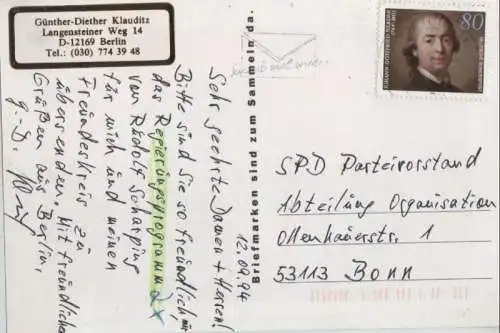 Günther-Diether Klauditz
Langensteiner Weg 14
D-12169 Berlin
Tel.: (030) 774 39 48
12.09.94
Sehr geehrte Damen + Herren!
Bitte sind Sie so freundlich, mir
das Regierungsprogramm 2x
von Rudolf Scharping
für mich und meinen
Freundeskreis zu
übersenden. Mit freundlichen
Grüßen aus Berlin,
G.-D.
Briefmarken sind zum Sammeln da.
80
SPD Parteivorstand
Abteilung Organisation
Ollenhauerstr. 1
53113 Bonn